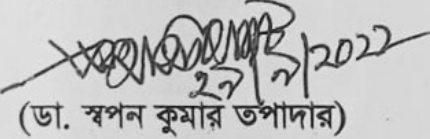 ২৭/৭/2022
(ডা. স্বপন কুমার তপাদার)